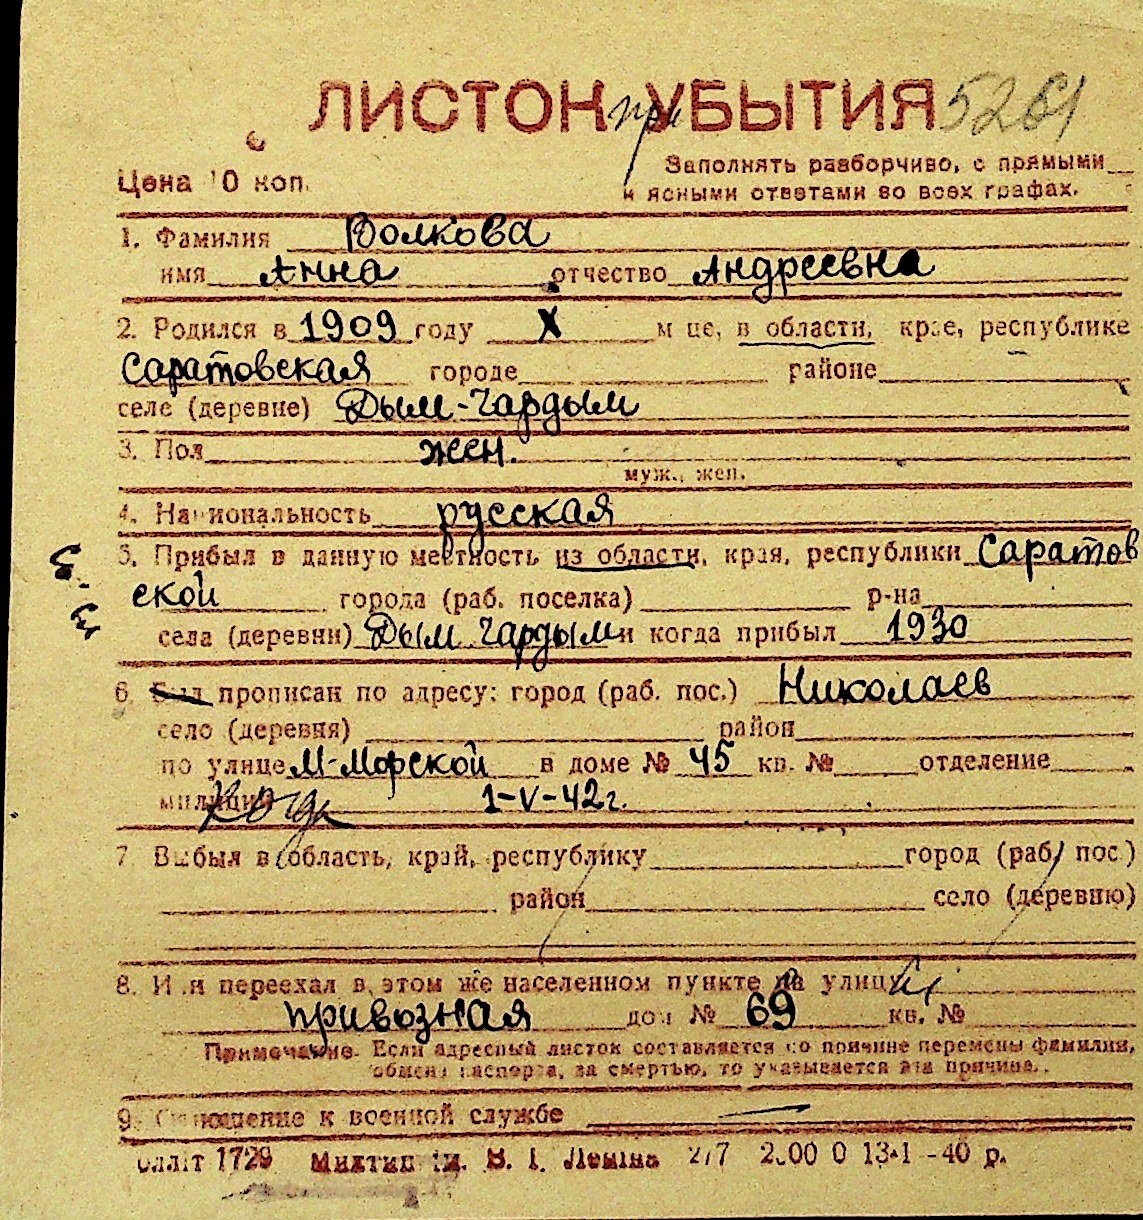 ЛИСТОК при УБЫТИЯ 5261
Цена 10 коп.
Заполнять разборчиво, с прямыми
и ясными ответами во всех графах.
1. Фамилия Волкова
имя Анна отчество Андреевна
2. Родился в 1909 году X м це, в области, крае, республике
Саратовская городе районе
селе (деревне) Дым-Чардым
3. Пол жен.
муж., жен.
4. Национальность русская
5. Прибыл в данную местность из области, края, республики Саратов
ской города (раб. поселка) р-на
села (деревни) Дым Чардым и когда прибыл 1930
6. Был прописан по адресу: город (раб. пос.) Николаев
село (деревня) район
по улице М-Морской в доме № 45 кв. № отделение
милиции Когда 1-V-42г.
7. Выбыл в область, край, республику город (раб. пос.)
район село (деревню)
8. Или переехал в этом же населенном пункте на улицу
привозная дом № 69 кв. №
Примечание. Если адресный листок составляется по причине перемены фамилии,
обмена паспорта, за смертью, то указывается эта причина.
9. Отношение к военной службе —
1729 им. В. І. Леніна 277 13-1-40 р.